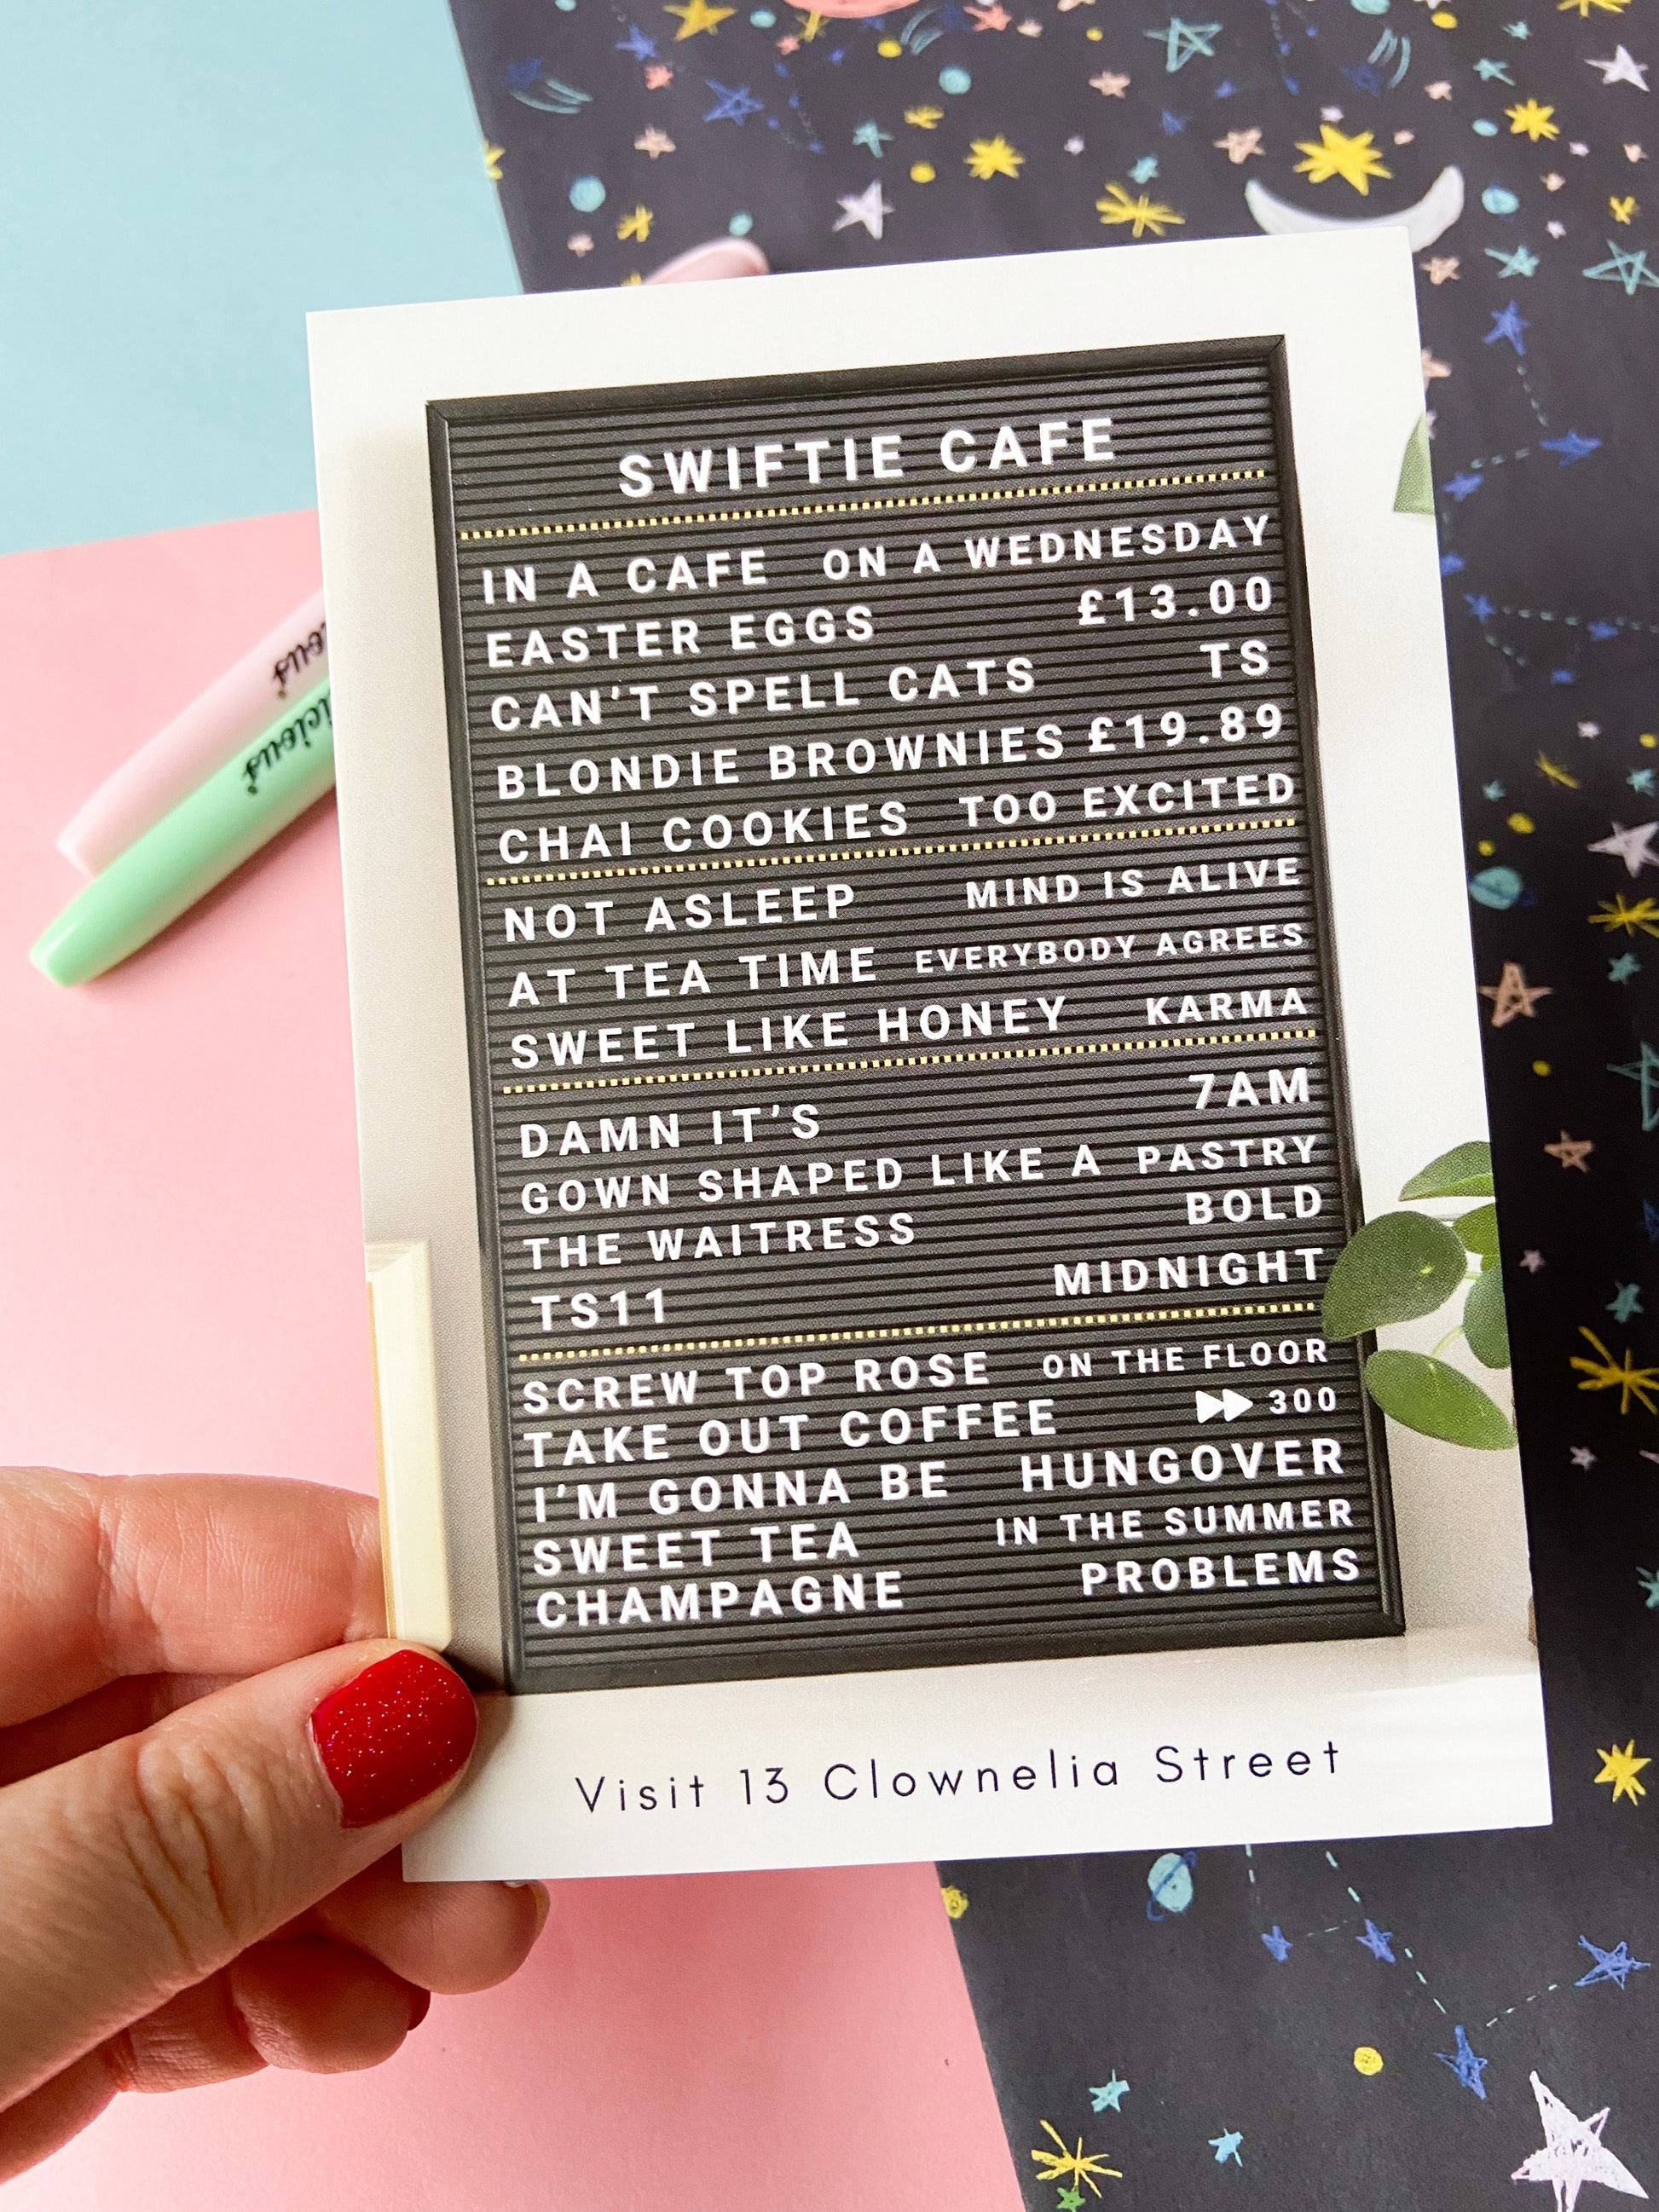 SWIFTIE CAFE
IN A CAFE ON A WEDNESDAY
EASTER EGGS £13.00
CAN'T SPELL CATS TS
BLONDIE BROWNIES £19.89
CHAI COOKIES TOO EXCITED
NOT ASLEEP MIND IS ALIVE
AT TEA TIME EVERYBODY AGREES
SWEET LIKE HONEY KARMA
DAMN IT'S 7AM
GOWN SHAPED LIKE A PASTRY
THE WAITRESS BOLD
TS11 MIDNIGHT
SCREW TOP ROSE ON THE FLOOR
TAKE OUT COFFEE 300
I'M GONNA BE HUNGOVER
SWEET TEA IN THE SUMMER
CHAMPAGNE PROBLEMS
Visit 13 Clownelia Street